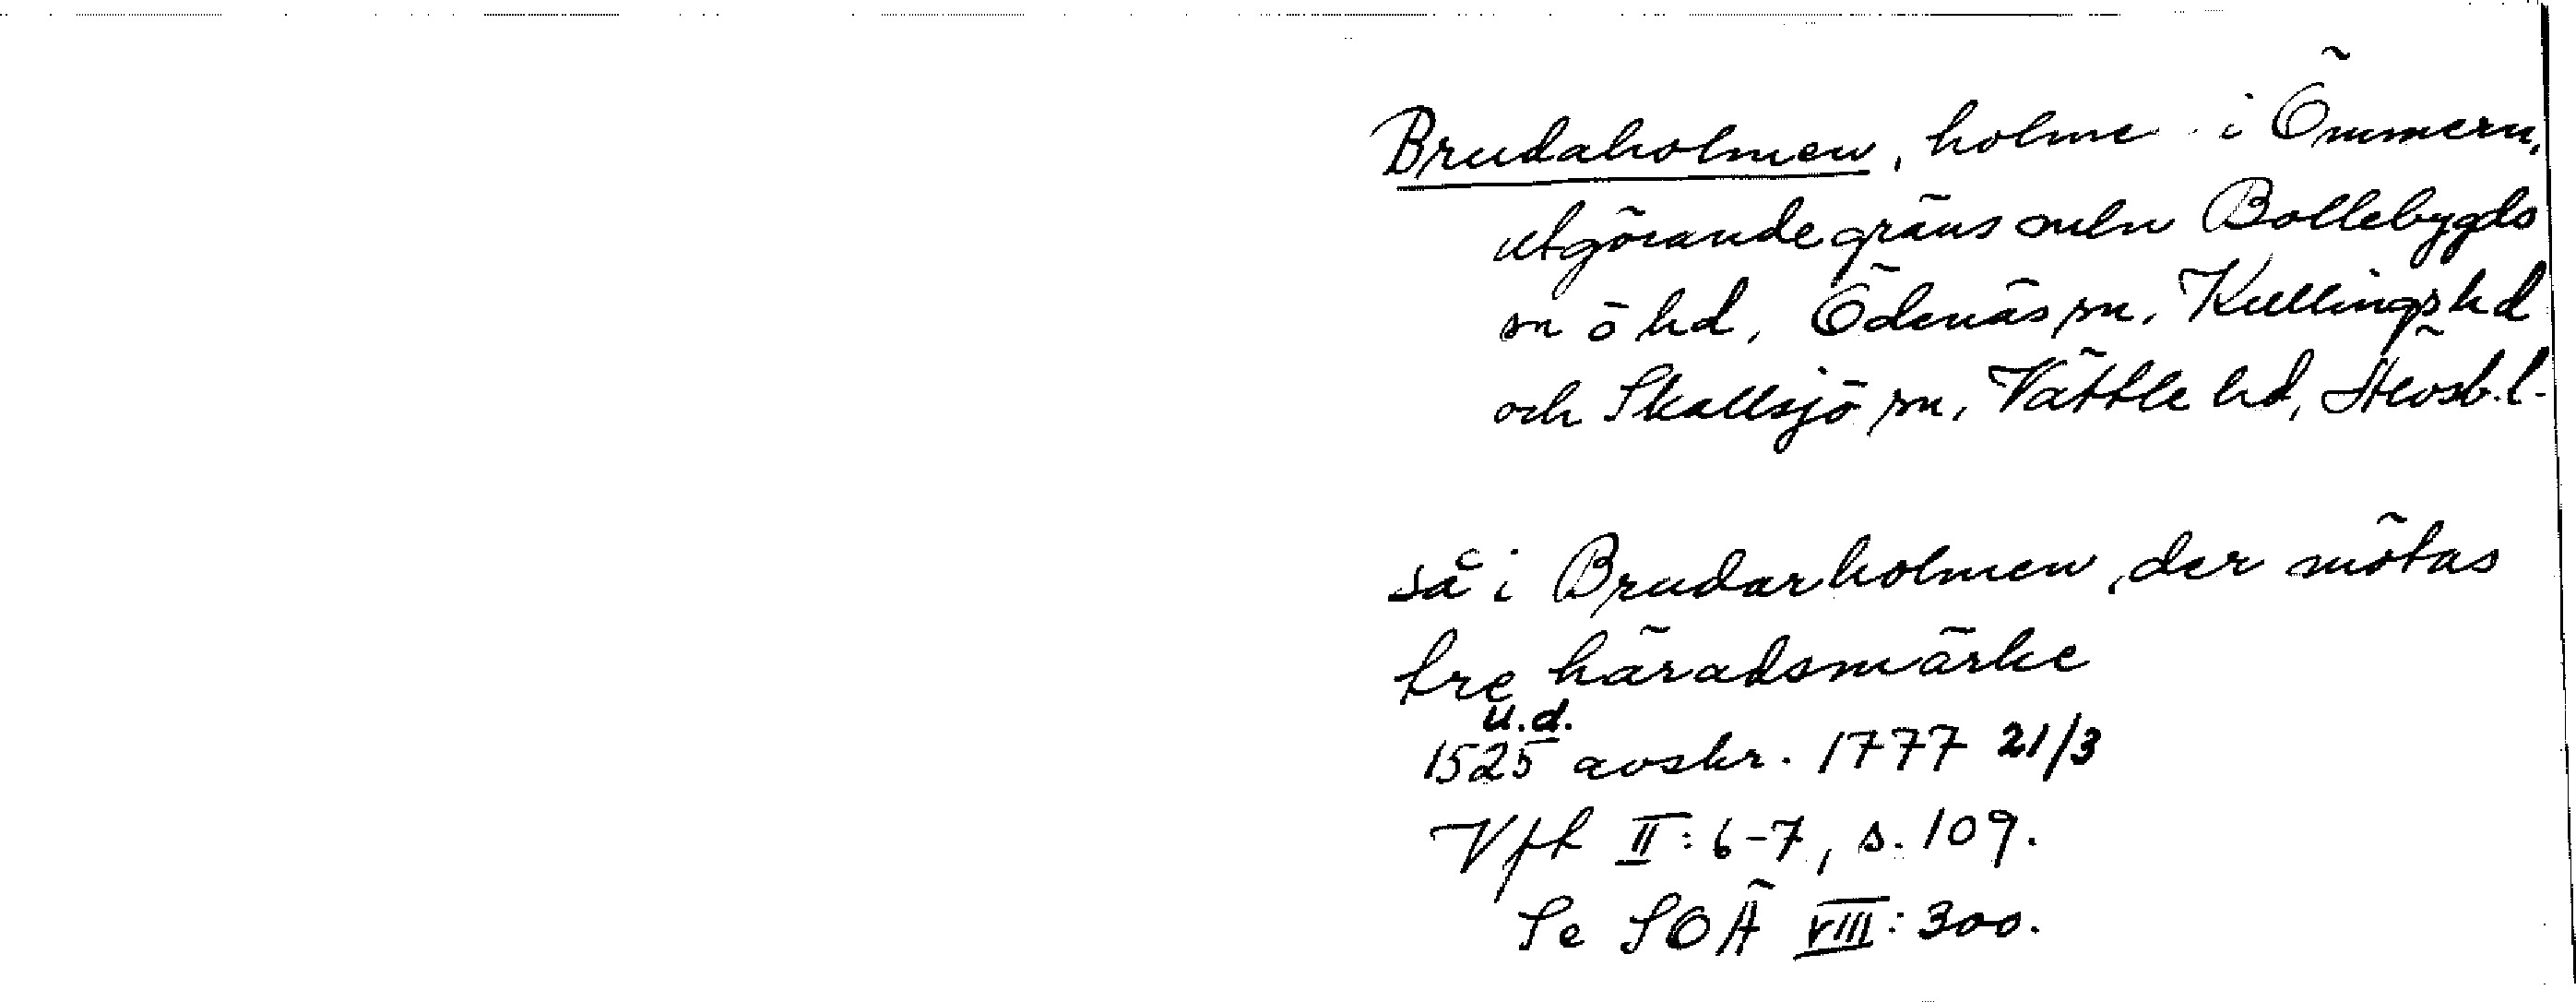 Brudaholmen, holme i Ömmern,
utgörande gräns meln Bollebygds
sn o hd, Ödenäs sn, Kullings hd
och Skallsjö sn, Vättle hd, Älvsb. l.
så i Brudarholmen, der mötas
tre häradsmärke
u.d.
1525 avskr. 1777 21/3
Vfh II: 6-7, s. 109.
Se SOÄ VIII: 300.